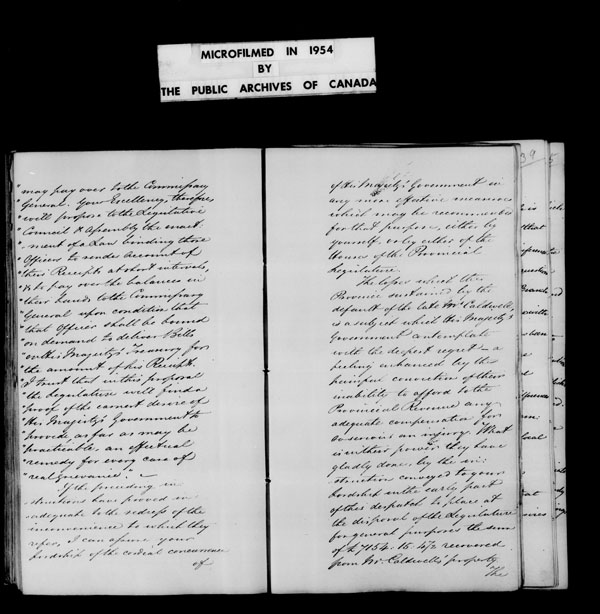 MICROFILMED IN 1954
BY
THE PUBLIC ARCHIVES OF CANADA
" may pay over to the Commissary
" General. Your Excellency, therefore,
" will propose to the Legislative
" Council & Assembly the enact
" ment of a Law binding those
" Officers to render Account of
" their Receipts at short intervals,
" & to pay over the balances in
" their hands to the Commissary
" General upon condition that
" that Officer shall be bound
" on demand to deliver Bills
" on His Majesty's Treasury for
" the amount of his Receipts.
" I trust that in this proposal
" the Legislature will find a
" proof of the earnest desire of
" His Majesty's Government to
" provide as far as may be
" practicable, an effectual
" remedy for every case of
" real grievance.
If the preceding in
structions have proved in
adequate to the redress of the
inconvenience to which they
refer, I can assure your
Lordship of the cordial concurrence
of
39
of His Majesty's Government in
any more effective measures
which may be recommended
for that purpose, either by
yourself, or by either of the
Houses of the Provincial
Legislature.
The losses which the
Province sustained by the
default of the late Mr. Caldwell,
is a subject which His Majesty's
Government contemplate
with the deepest regret - a
feeling enhanced by the
painful conviction of their
inability to afford to the
Provincial Revenue any
adequate compensation for
so serious an injury. What
is in their power they have
gladly done by the in
struction conveyed to your
Lordship in the early part
of this despatch to place at
the disposal of the Legislature
for general purposes the sum
of £7154.15.4½ recovered
from Mr. Caldwell's property.
The